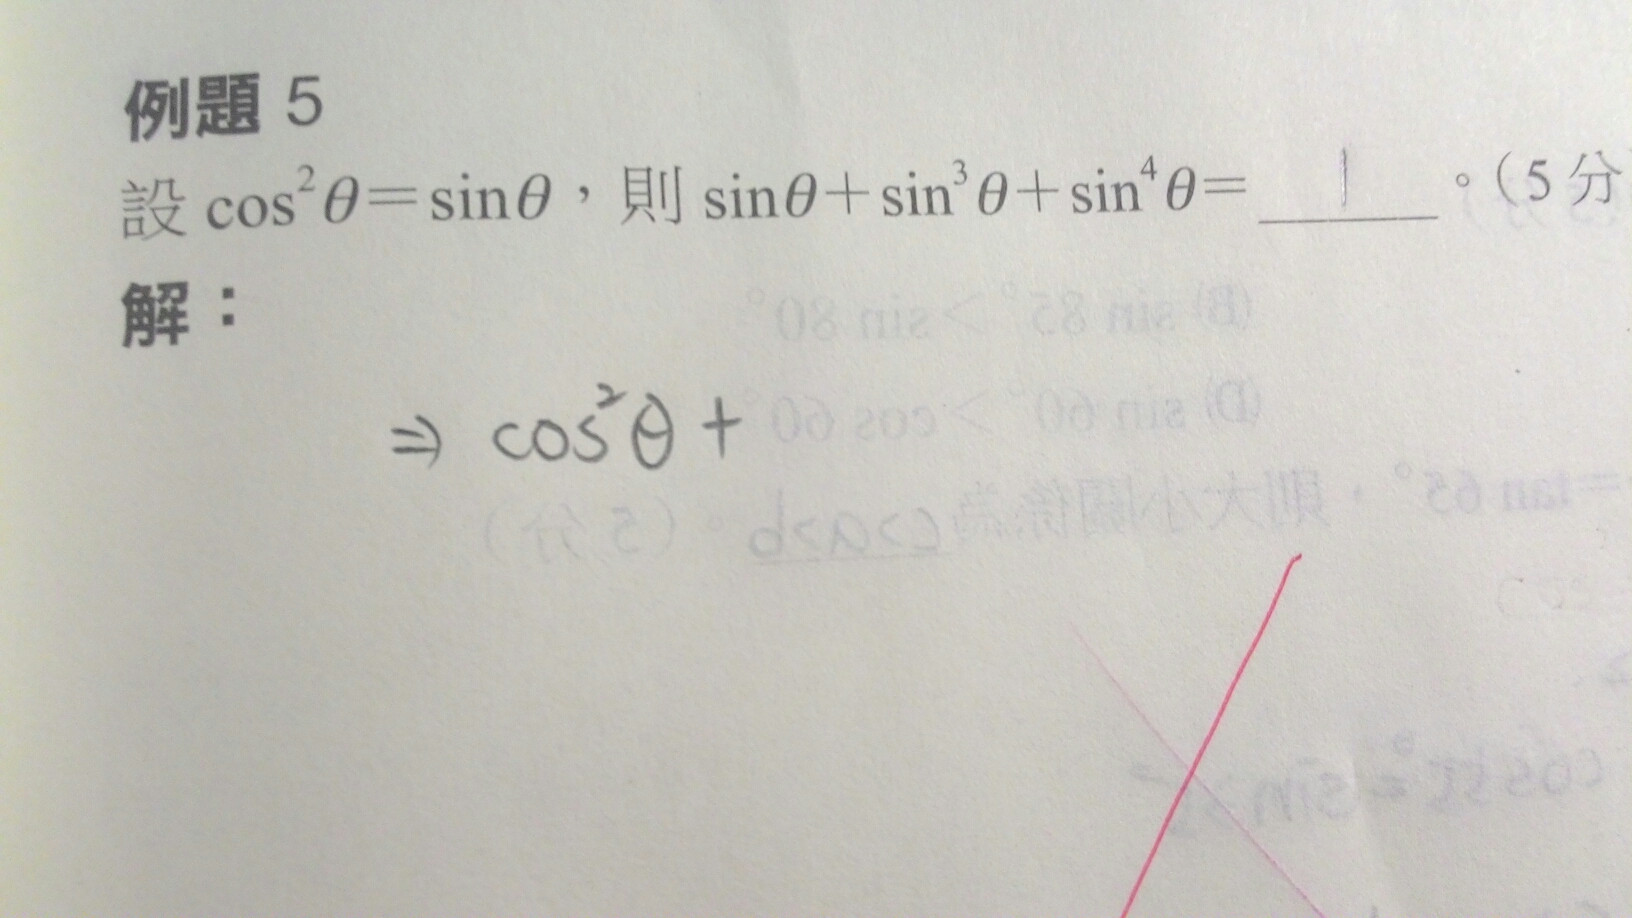 例題 5
設 cos²θ=sinθ，則 sinθ+sin³θ+sin⁴θ= 1 。(5 分
解：
⇒ cos²θ+